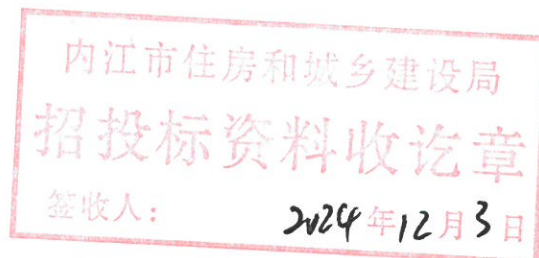 内江市住房和城乡建设局
招投标资料收讫章
签收人: 2024年12月3日